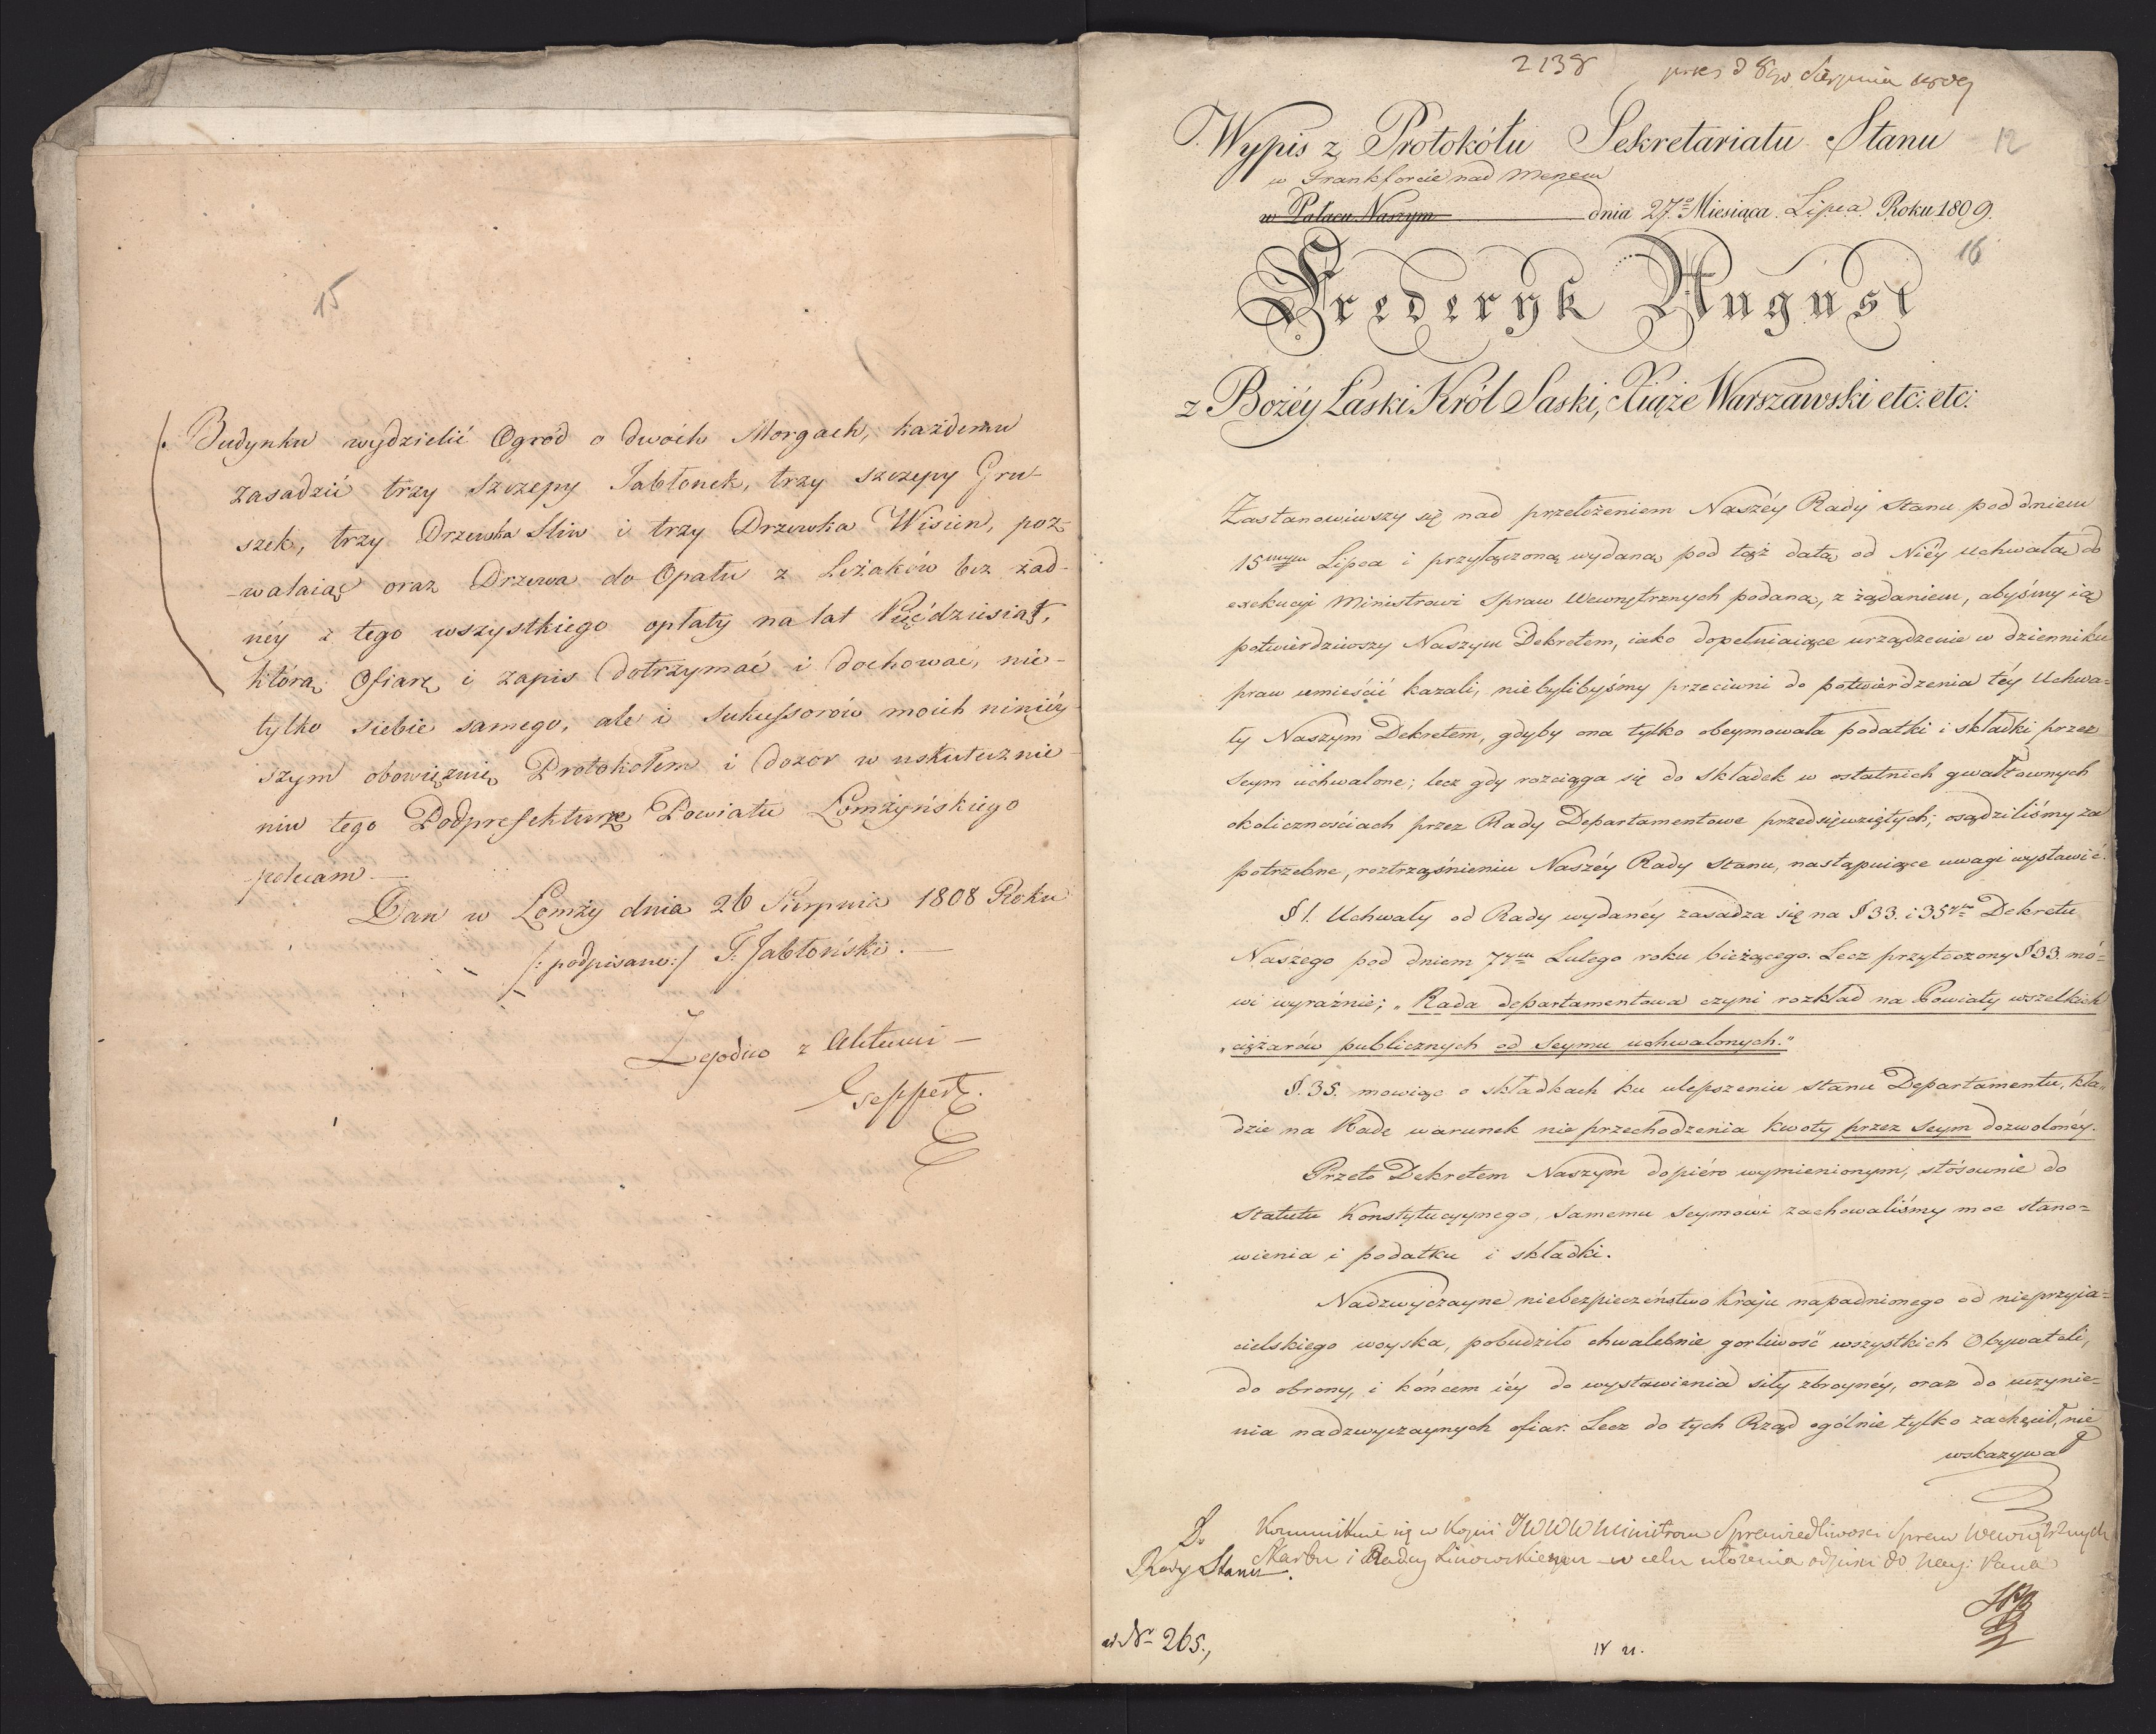 15
Budynku wydzielić Ogród o dwóch Morgach, każdemu
zasadzić trzy szczepy Jabłonek, trzy szczepy Gru-
szek, trzy Drzewka Sliw i trzy Drzewka Wisien, poz-
-walaiąc oraz Drzewa do Opału z Leżaków bez żad-
néy z tego wszystkiego opłaty na lat Pięćdziesiąt,
którą Ofiarę i zapis dotrzymać i dochować, nie-
tylko siebie samego, ale i Sukussorów moich ninićy-
szym obowięzuię Protokołem i dozor w uskutecznie-
niu tego Podprefekturze Powiatu Łomżyńskiego
polecam —
Dan w Łomży dnia 26 Sierpnia 1808 Roku
/: podpisano:/ T. Jabłoński. —
Zgodno z Aktami —
Geppert.
2138 8go Sierpnia
Wypis z Protokółu Sekretariatu Stanu 12
w Frankforcie nad Menem
w Pałacu Naszym dnia 27.º Miesiąca Lipca Roku 1809.
16
Frederyk August
z Bożéy Łaski Król Saski, Xiąże Warszawski etc: etc:
Zastanowiwszy się nad przełożeniem Naszéy Rady Stanu pod dniem
15mym Lipca i przyłączoną wydaną pod tąż datą od Niéy Uchwałą do
exekucyi Ministrowi Spraw Wewnętrznych podaną, z żądaniem, abyśmy ią
potwierdziwszy Naszym Dekretem, iako dopełniaiące urządzenie w dzienniku
praw umieścić kazali, niebylibyśmy przeciwni do potwierdzenia téy Uchwa=
ły Naszym Dekretem, gdyby ona tylko obeymowała podatki i składki przez
Seym uchwalone; lecz gdy rozciąga się do składek w ostatnich gwałtownych
okolicznościach przez Rady Departamentowe przedsięwziętych; osądziliśmy za
potrzebne, roztrząśnieniu Naszéy Rady Stanu, następuiące uwagi wystawić.
§ 1. Uchwały od Rady wydanéy zasadza się na § 33. i 35tym Dekretu
Naszego pod dniem 7ym Lutego roku bieżącego. Lecz przytoczony § 33. mó=
wi wyraźnie; „Rada departamentowa czyni rozkład na Powiaty wszelkich
„ciężarów publicznych od Seymu uchwalonych."
§. 35. mowiąc o składkach ku ulepszeniu stanu Departamentu, kła=
dzie na Radę warunek nie przechodzenia kwoty przez Seym dozwolonéy.
Przeto Dekretem Naszym dopiéro wymienionym, stósownie do
Statutu Konstytucyynego, samemu Seymowi zachowaliśmy moc stano=
wienia i podatku i składki.
Nadzwyczayne niebezpieczeństwo kraju napadnionego od nieprzyia=
cielskiego woyska, pobudziło chwalebnie gorliwość wszystkich Obywateli,
do obrony, i końcem iéy do wystawienia siły zbroynéy, oraz do uczynie=
nia nadzwyczaynych ofiar. Lecz do tych Rząd ogólnie tylko zachęcił, nie
wskazywał
Do
Rady Stanu.
Kommunikuie się w Kopii JWWW Ministrom Sprawiedliwosci Spraw Wewnętrznych
Skarbu i Radcy Linowskiemu — w celu ułożenia odpisu do Nay: Pana
ad Nº 265.,